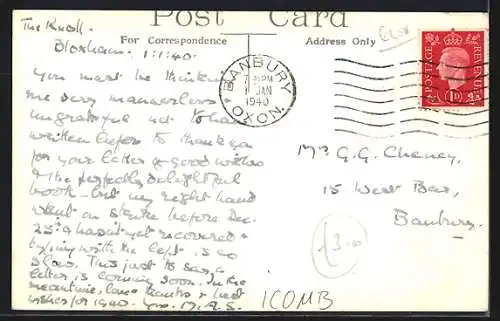 Post Card
For Correspondence
Address Only
The Knoll.
Bloxham. 1:1:40.
You must be thinking
me very mannerless &
ungrateful not to have
written before to thank you
for your letter & good wishes
& the perfectly delightful
book – but my right hand
went on strike before Dec.
25th & hasn't yet recovered &
trying with the left is so
slow. This just to say, a
letter is coming soon. In the
meantime, love thanks & best
wishes for 1940.
BANBURY
PM
1 JAN
1940
OXON.
POSTAGE
REVENUE
1D
Mr G. G. Cheney,
15 West Bar,
Banbury.
£3.00
ICOMB